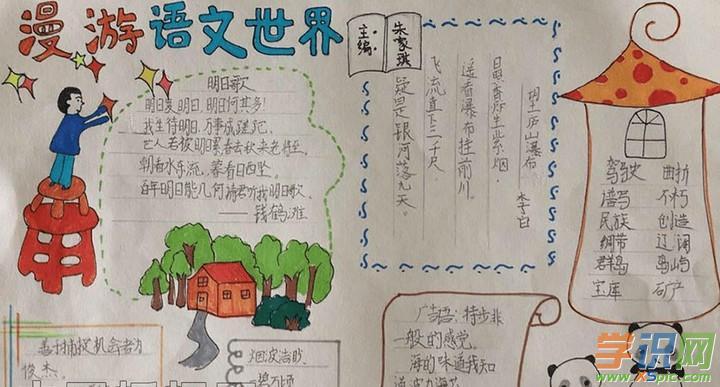 漫游语文世界
主编:
朱家琪
明日歌
明日复明日,明日何其多!
我生待明日,万事成蹉跎.
世人若被明日累春去秋来老将至.
朝看水东流,暮看日西坠.
百年明日能几何请君听我明日歌.
——钱鹤滩
望庐山瀑布
李白
日照香炉生紫烟,
遥看瀑布挂前川。
飞流直下三千尺,
疑是银河落九天。
驾驶 曲折
谱写 不朽
民族 创造
绸带 辽阔
群岛 岛屿
宝库 矿产
善于捕捉机会者为
俊杰.
烟波浩眇
一碧万顷
广告语:特步非
一般的感觉.
海的味道我知
学识网
www.XSpic.com